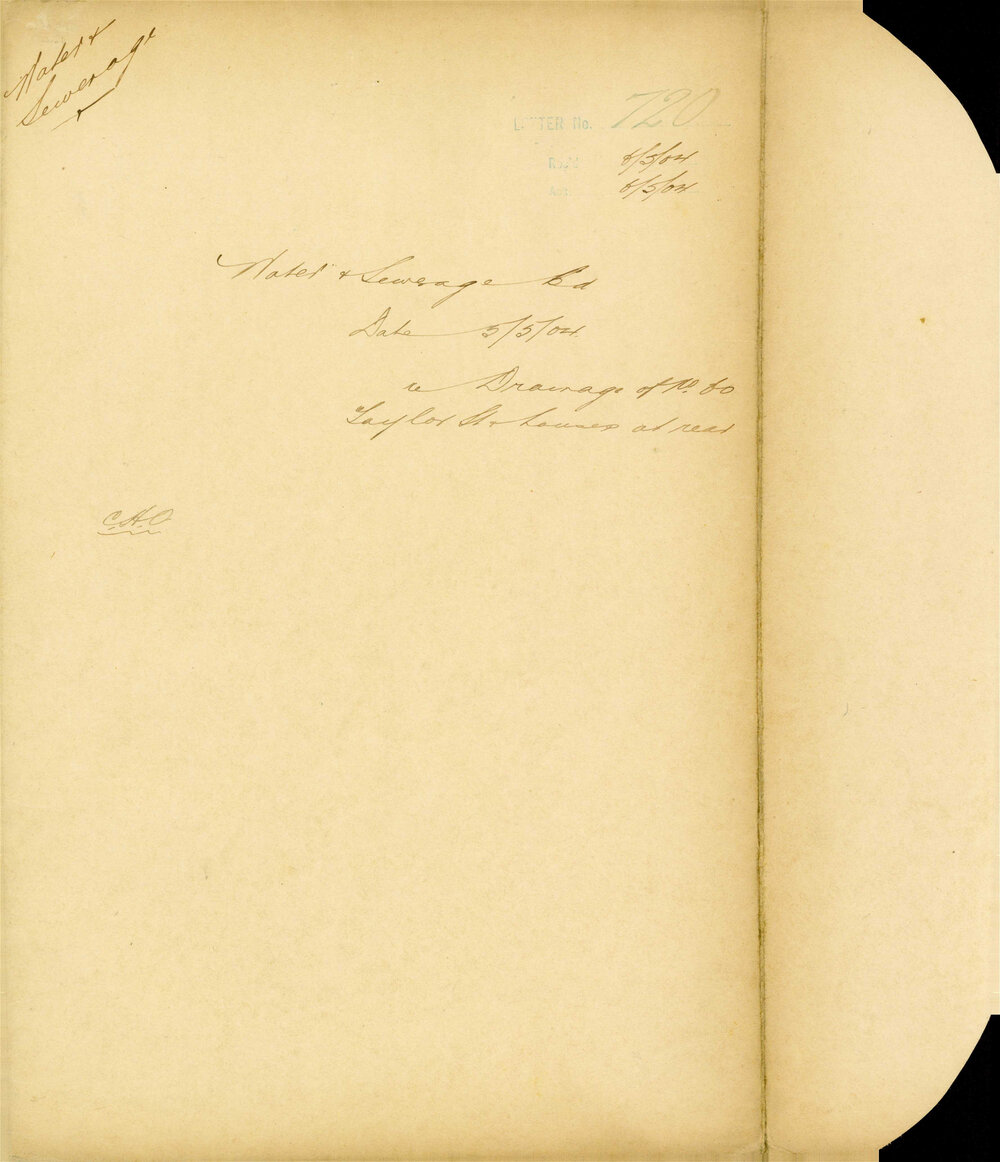 Water &
Sewerage
LETTER No. 720
Recd 6/5/04
Ans. 6/5/04
Water & Sewerage Bd
Date 5/5/04
re Drainage of No. 60
Taylor St & houses at rear
C.H.O